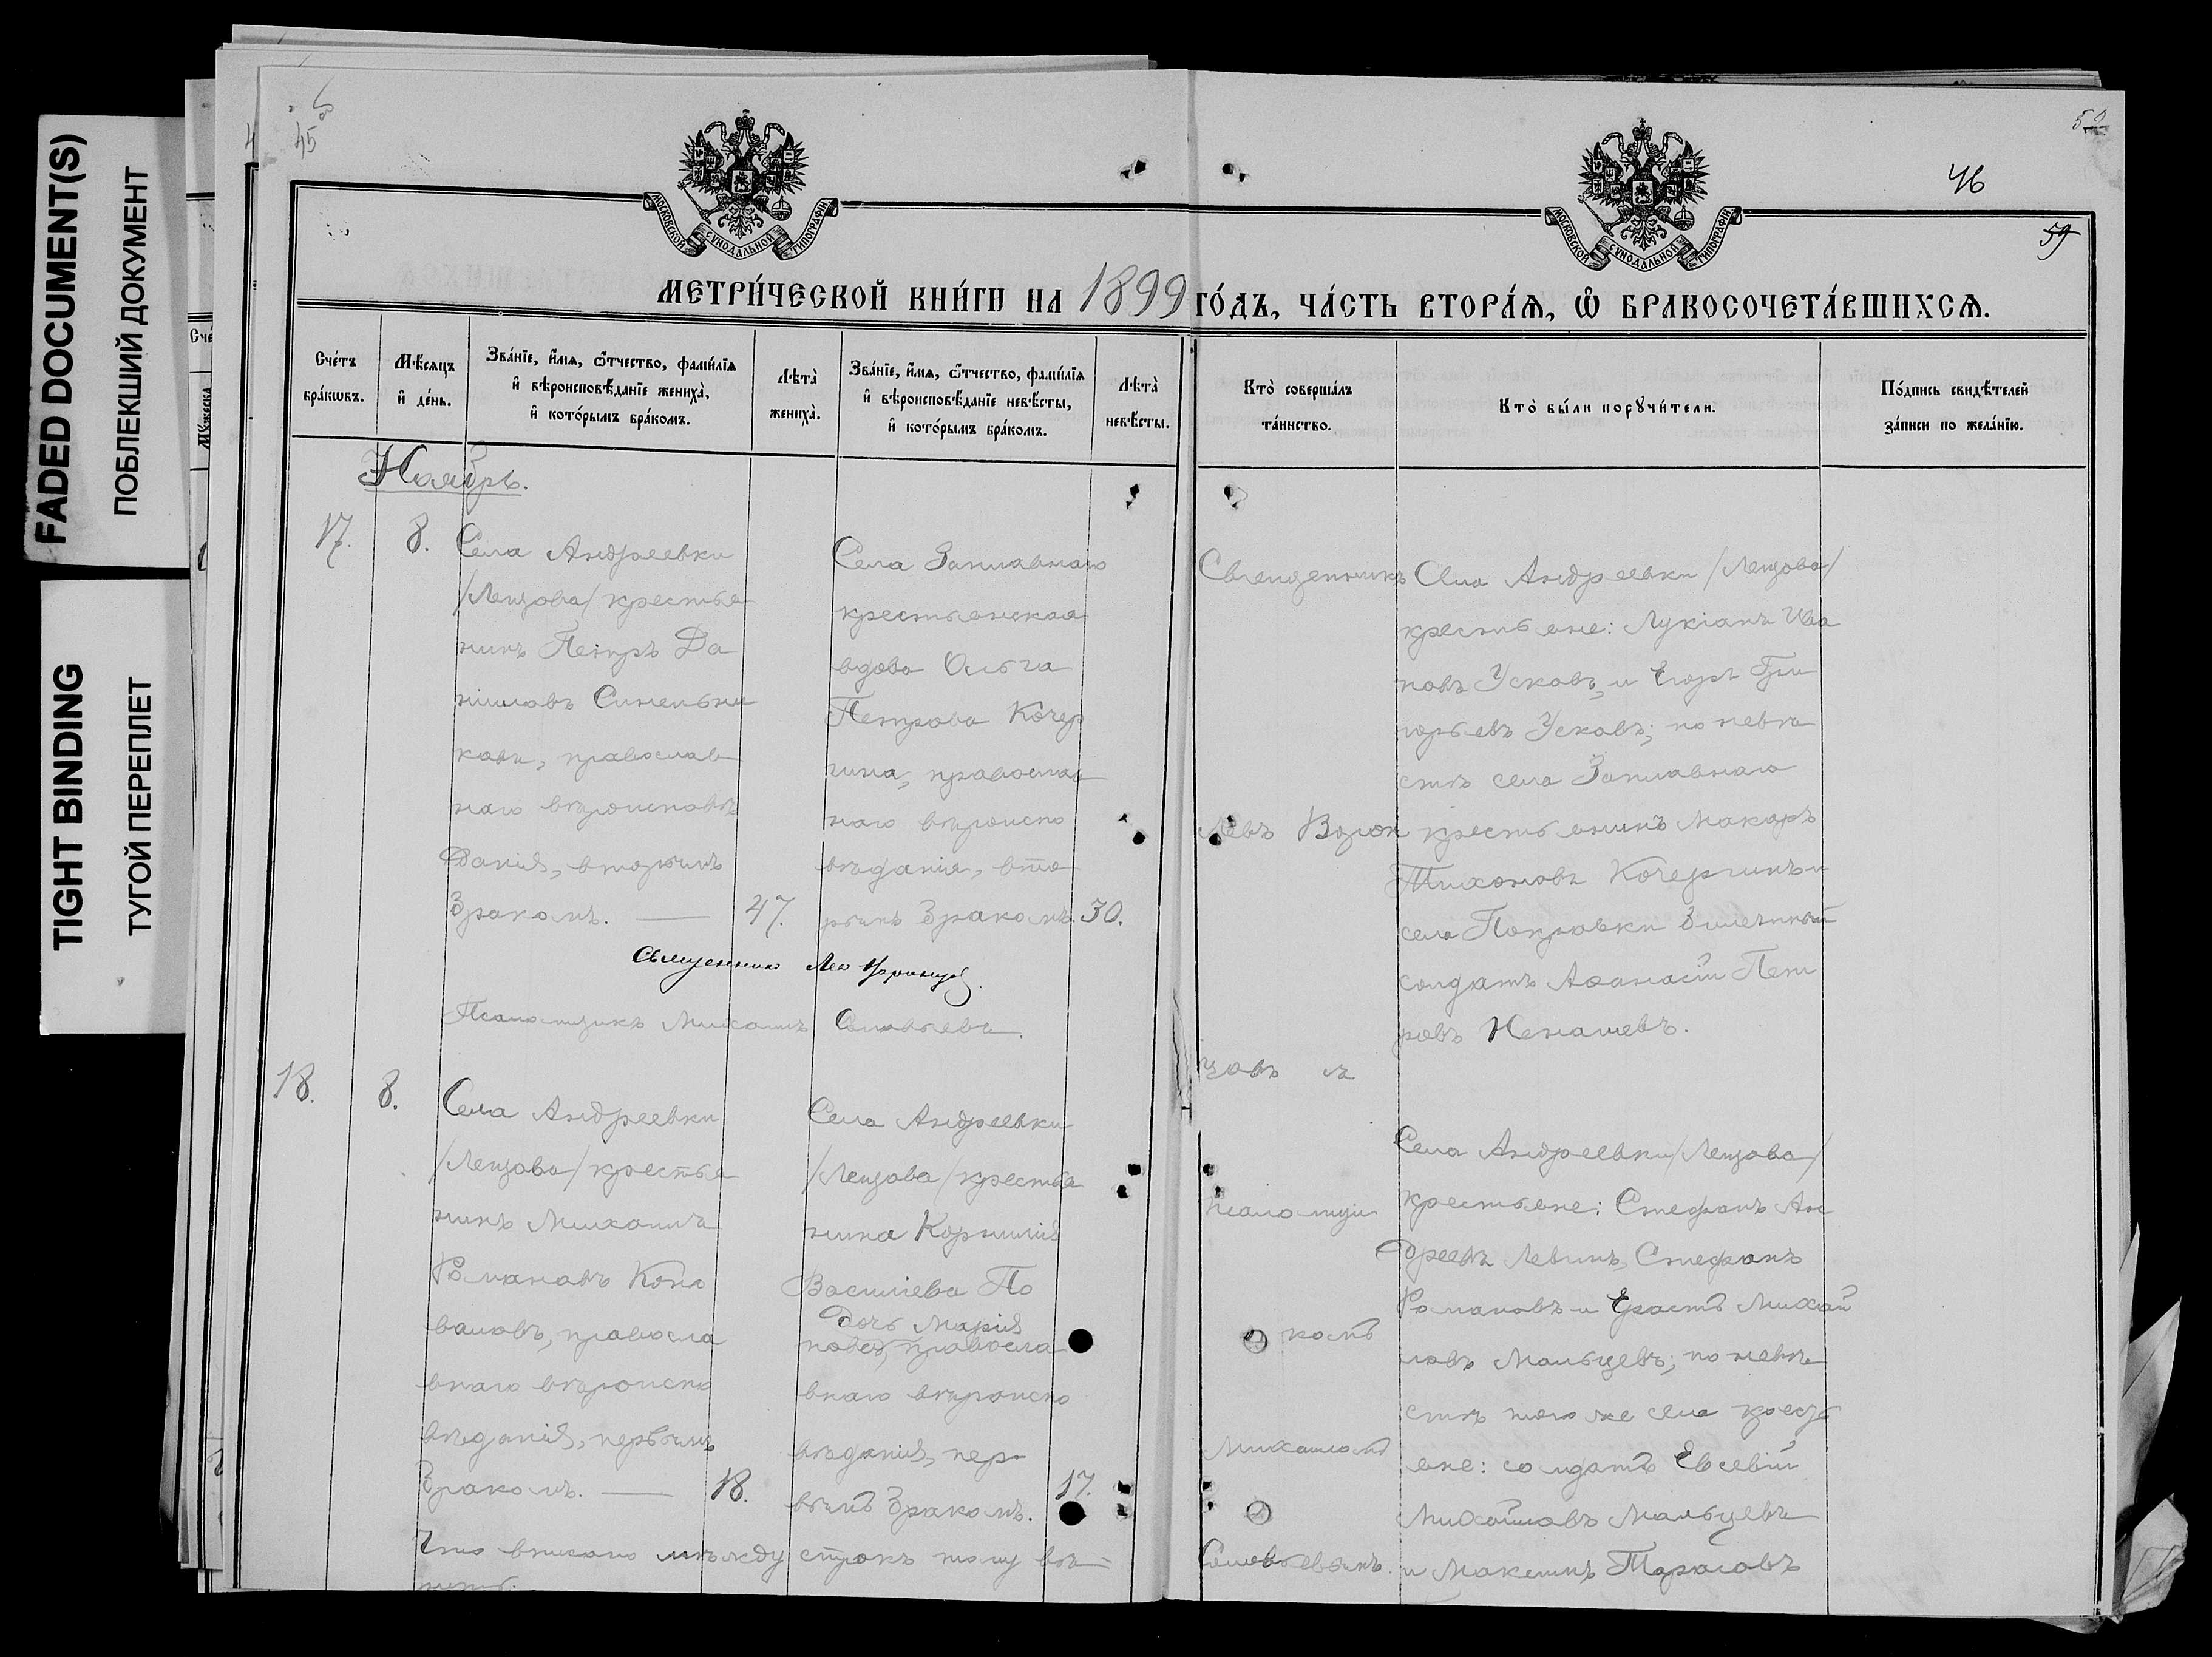 FADED DOCUMENT(S)
ПОБЛЕКШИЙ ДОКУМЕНТ
TIGHT BINDING
ТУГОЙ ПЕРЕПЛЕТ
45
МОСКОВСКОЙ СѴНОДАЛЬНОЙ ТИПОГРАФІИ
МОСКОВСКОЙ СѴНОДАЛЬНОЙ ТИПОГРАФІИ
46
59
МЕТРИ́ЧЕСКОЙ КНИ́ГИ НА 1899 ГО́ДЪ, ЧА́СТЬ ВТОРА́Я, Ѡ҆ БРАКОСОЧЕТА́ВШИХСЯ.
Сче́тъ
бра́кѡвъ.
Мѣ́сяцъ
и҆ де́нь.
Зва́нїе, и҆́мя, ѻ҆́тчество, фами́лїя
и҆ вѣроисповѣ́данїе жениха̀,
и҆ кото́рымъ бра́комъ.
Лѣта̀
жениха̀.
Зва́нїе, и҆́мя, ѻ҆́тчество, фами́лїя
и҆ вѣроисповѣ́данїе невѣ́сты,
и҆ кото́рымъ бра́комъ.
Лѣта̀
невѣ́сты.
Кто̀ соверша́лъ
та́инство.
Кто̀ бы́ли порꙋчи́тели.
По́дпись свидѣ́телей
за́писи по жела́нїю.
Ноябрь.
17.
8.
Села Андреевки
/Лещова/ крестья
нинъ Петръ Да
ніиловъ Синельни
ковъ, православ
наго вѣроисповѣ
данія, вторымъ
бракомъ.
47.
Села Заплавнаго
крестьянская
вдова Ольга
Петрова Кочер
гина, православ
наго вѣроиспо
вѣданія, вто
рымъ бракомъ.
30.
Священникъ
Псаломщикъ Михаилъ Соловьевъ.
Села Андреевки /Лещова/
крестьяне: Лукіанъ Ива
новъ Усковъ и Егоръ Гри
горьевъ Усковъ; по невѣ
стѣ села Заплавнаго
крестьянинъ Макаръ
Тихоновъ Кочергинъ и
села Покровки билетный
солдатъ Аѳанасій Пет
ровъ Ненашевъ.
18.
8.
Села Андреевки
/Лещова/ крестья
нинъ Михаилъ
Романовъ Коно
валовъ, правосла
внаго вѣроиспо
вѣданія, первымъ
бракомъ.
18.
Села Андреевки
/Лещова/ крестья
нина Корнилія
Василіева По
дочь Марія
пова, правосла
внаго вѣроиспо
вѣданія, пер
вымъ бракомъ.
17.
Что вписано между строкъ тому вѣ=
рить.
Священникъ
Левъ
цовъ съ
псаломщи
комъ
Михаиломъ
Соловьевымъ.
Села Андреевки /Лещова/
крестьяне: Стефанъ Ан
дреевъ Левинъ, Стефанъ
Романовъ и Ерастъ Михай
ловъ Мальцевъ; по невѣ
стѣ того же села кресть
яне: солдатъ Евсевій
Михайловъ Мальцевъ
и Максимъ Тарасовъ